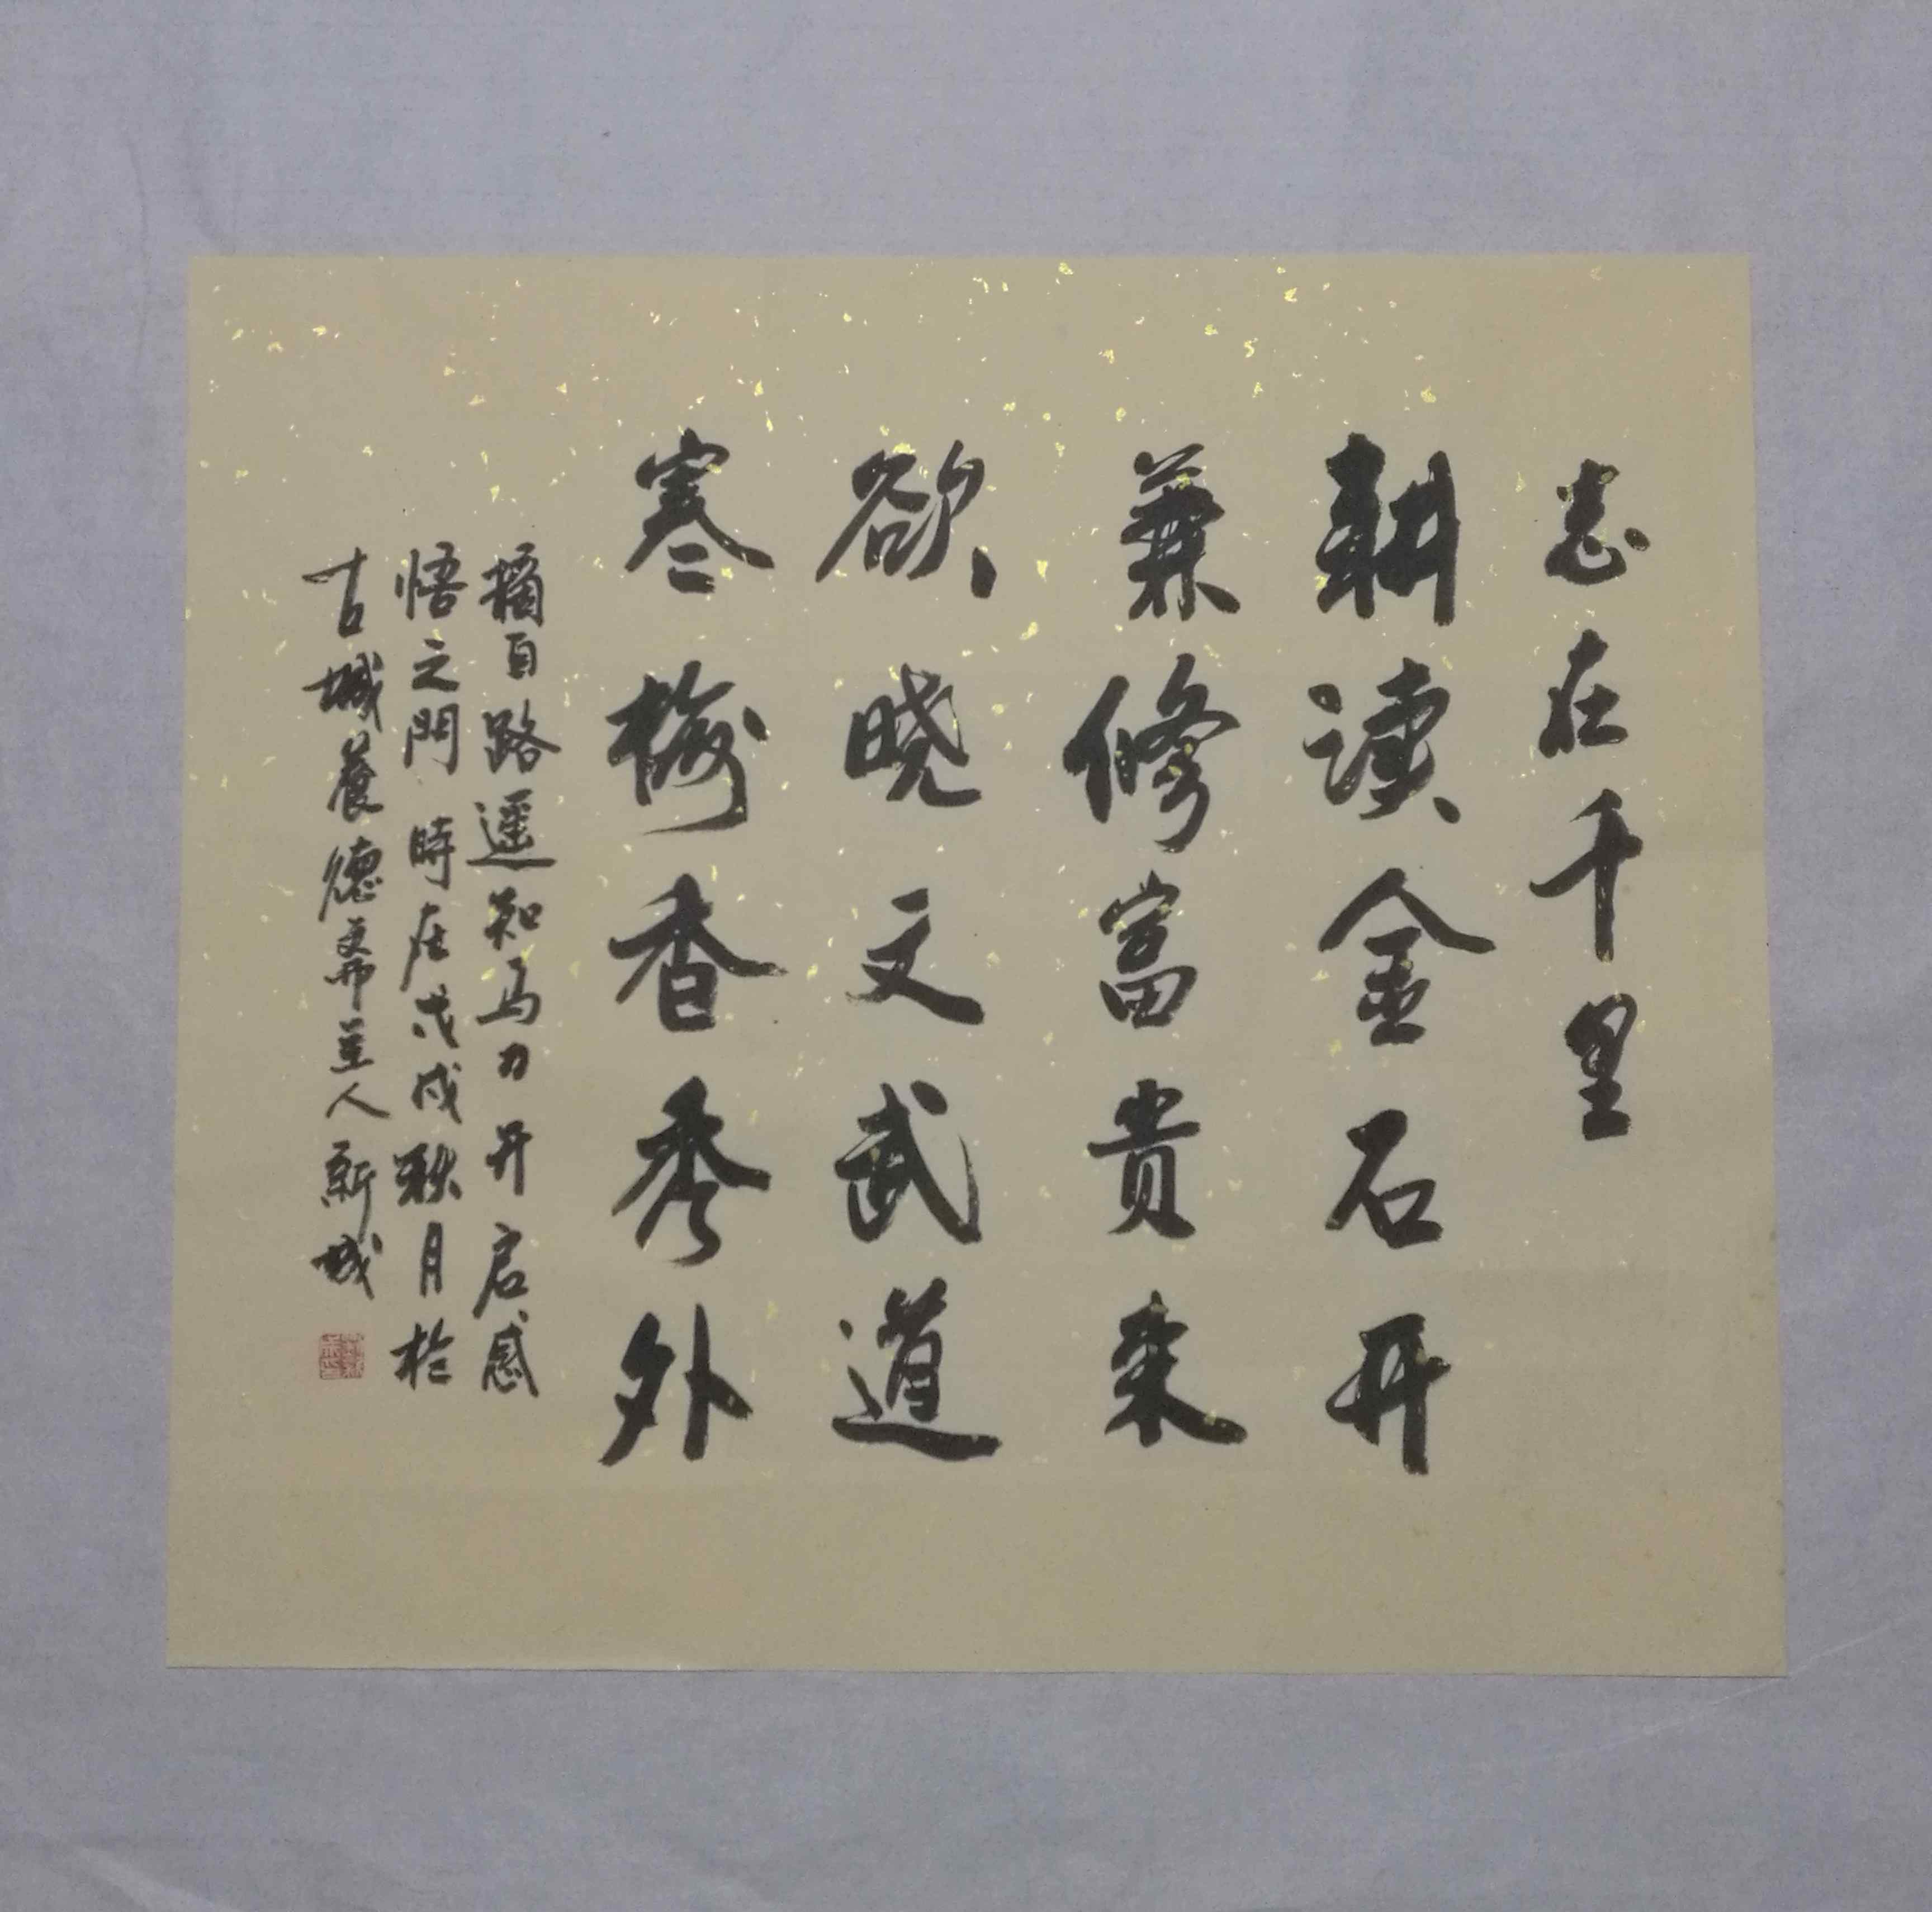 志在千里
耕读金石开
兼修富贵来
欲晓文武道
寒梅香秀外
摘自路遥知马力开启感
悟之門時在戊戌秋月於
古城養德斋主人新城